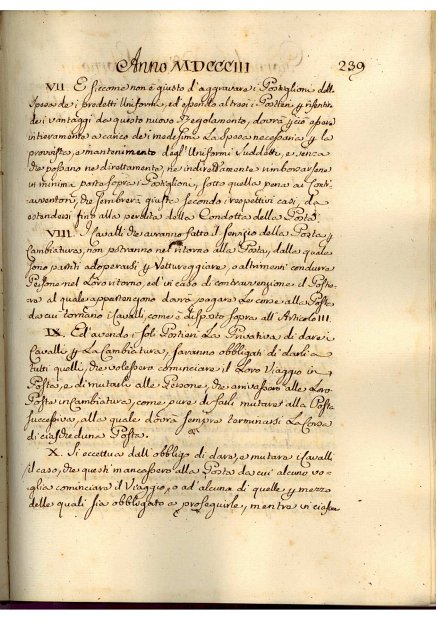 Anno MDCCCIII 239
VII. E siccome non è giusto d'aggravare i Postiglioni dell
spesa dei predetti Uniformi, ed essendo altresì i Postieri
dei vantaggi da questo nuovo Regolamento, dovrà perciò essere
intieramente a carico dei medesimi la spesa necessaria per la
provvista, e mantenimento degl'Uniformi suddetti, e senza
che possano nè direttamente, nè indirettamente rimborsarsene
in minima parte sopra i Postiglioni, sotto quella pena ai Contravventori, che sembrerà giusta secondo i rispettivi casi, da
estendersi fino alla perdita della Condotta della Posta.
VIII. I Cavalli che avranno fatto il servizio della Posta, e
Cambiatura, non potranno nel ritorno alla Posta, dalla quale
sono partiti adoperarsi per Vettureggiare, o altrimenti condurre
Persone nel Loro ritorno, ed in caso di contravvenzione il Postiere
al quale appartengono dovrà pagare le corse alla Posta
da cui tornano i Cavalli, come è disposto sopra all'Articolo III.
IX. Ed avendo i soli Postieri La Privativa di dare i
Cavalli per La Cambiatura, saranno obbligati di darli a
tutti quelli, che volessero cominciare il Loro Viaggio in
Posta, e di mutarli alle Persone, che arrivassero alle Loro
Poste in Cambiatura, come pure di farli mutare alla Posta
successiva, alla quale dovrà sempre terminarsi La Corsa
di ciascheduna Posta.
X. Si eccettua dall'obbligo di dare, e mutare i Cavalli
il caso, che questi mancassero alla Posta da cui alcuno voglia cominciare il Viaggio, o ad alcuna di quelle per mezzo
delle quali sia obbligato a proseguirlo, mentre in ciascu